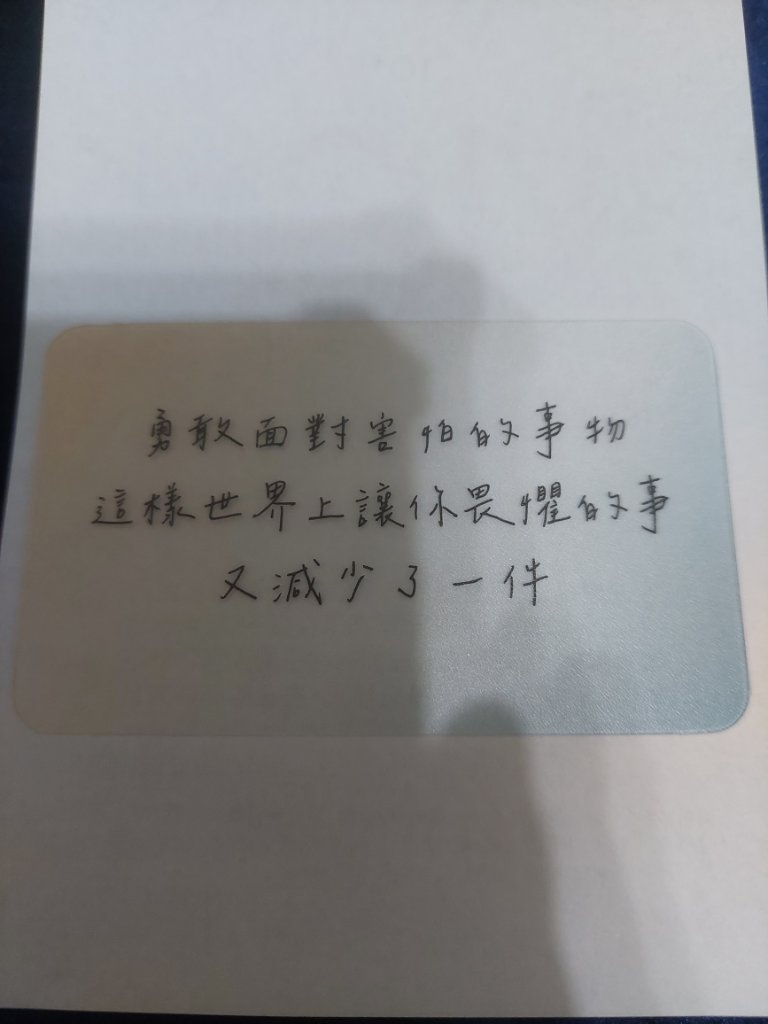 勇敢面對害怕的事物
這樣世界上讓你畏懼的事
又減少了一件